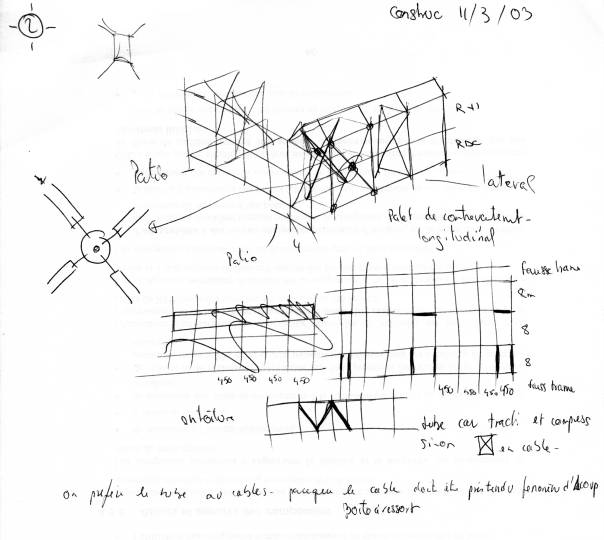 2
Construc 11/3/03
R+1
RDC
Patio
lateral
Palet de contreventement
longitudinal
Patio
4
fausse trame
8m
8
8
450 450 450 450
450 450 450 450
fauss trame
en toiture
tube car tracti et compress
sinon en cable-
on préfère le tube au cables- parceque le cable doit être prétendu d'Acoup
Boite à ressort